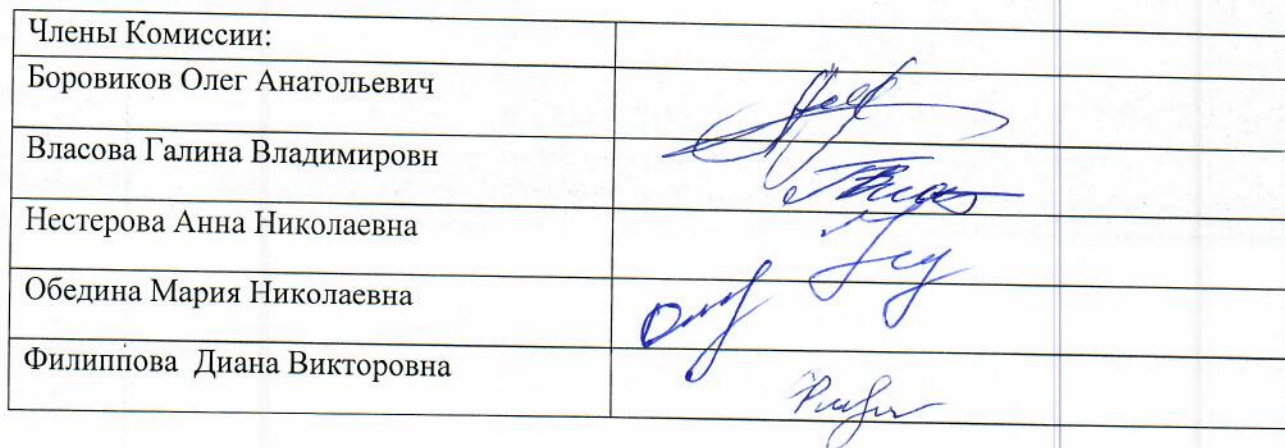 Члены Комиссии:
Боровиков Олег Анатольевич
Власова Галина Владимировн
Нестерова Анна Николаевна
Обедина Мария Николаевна
Филиппова Диана Викторовна